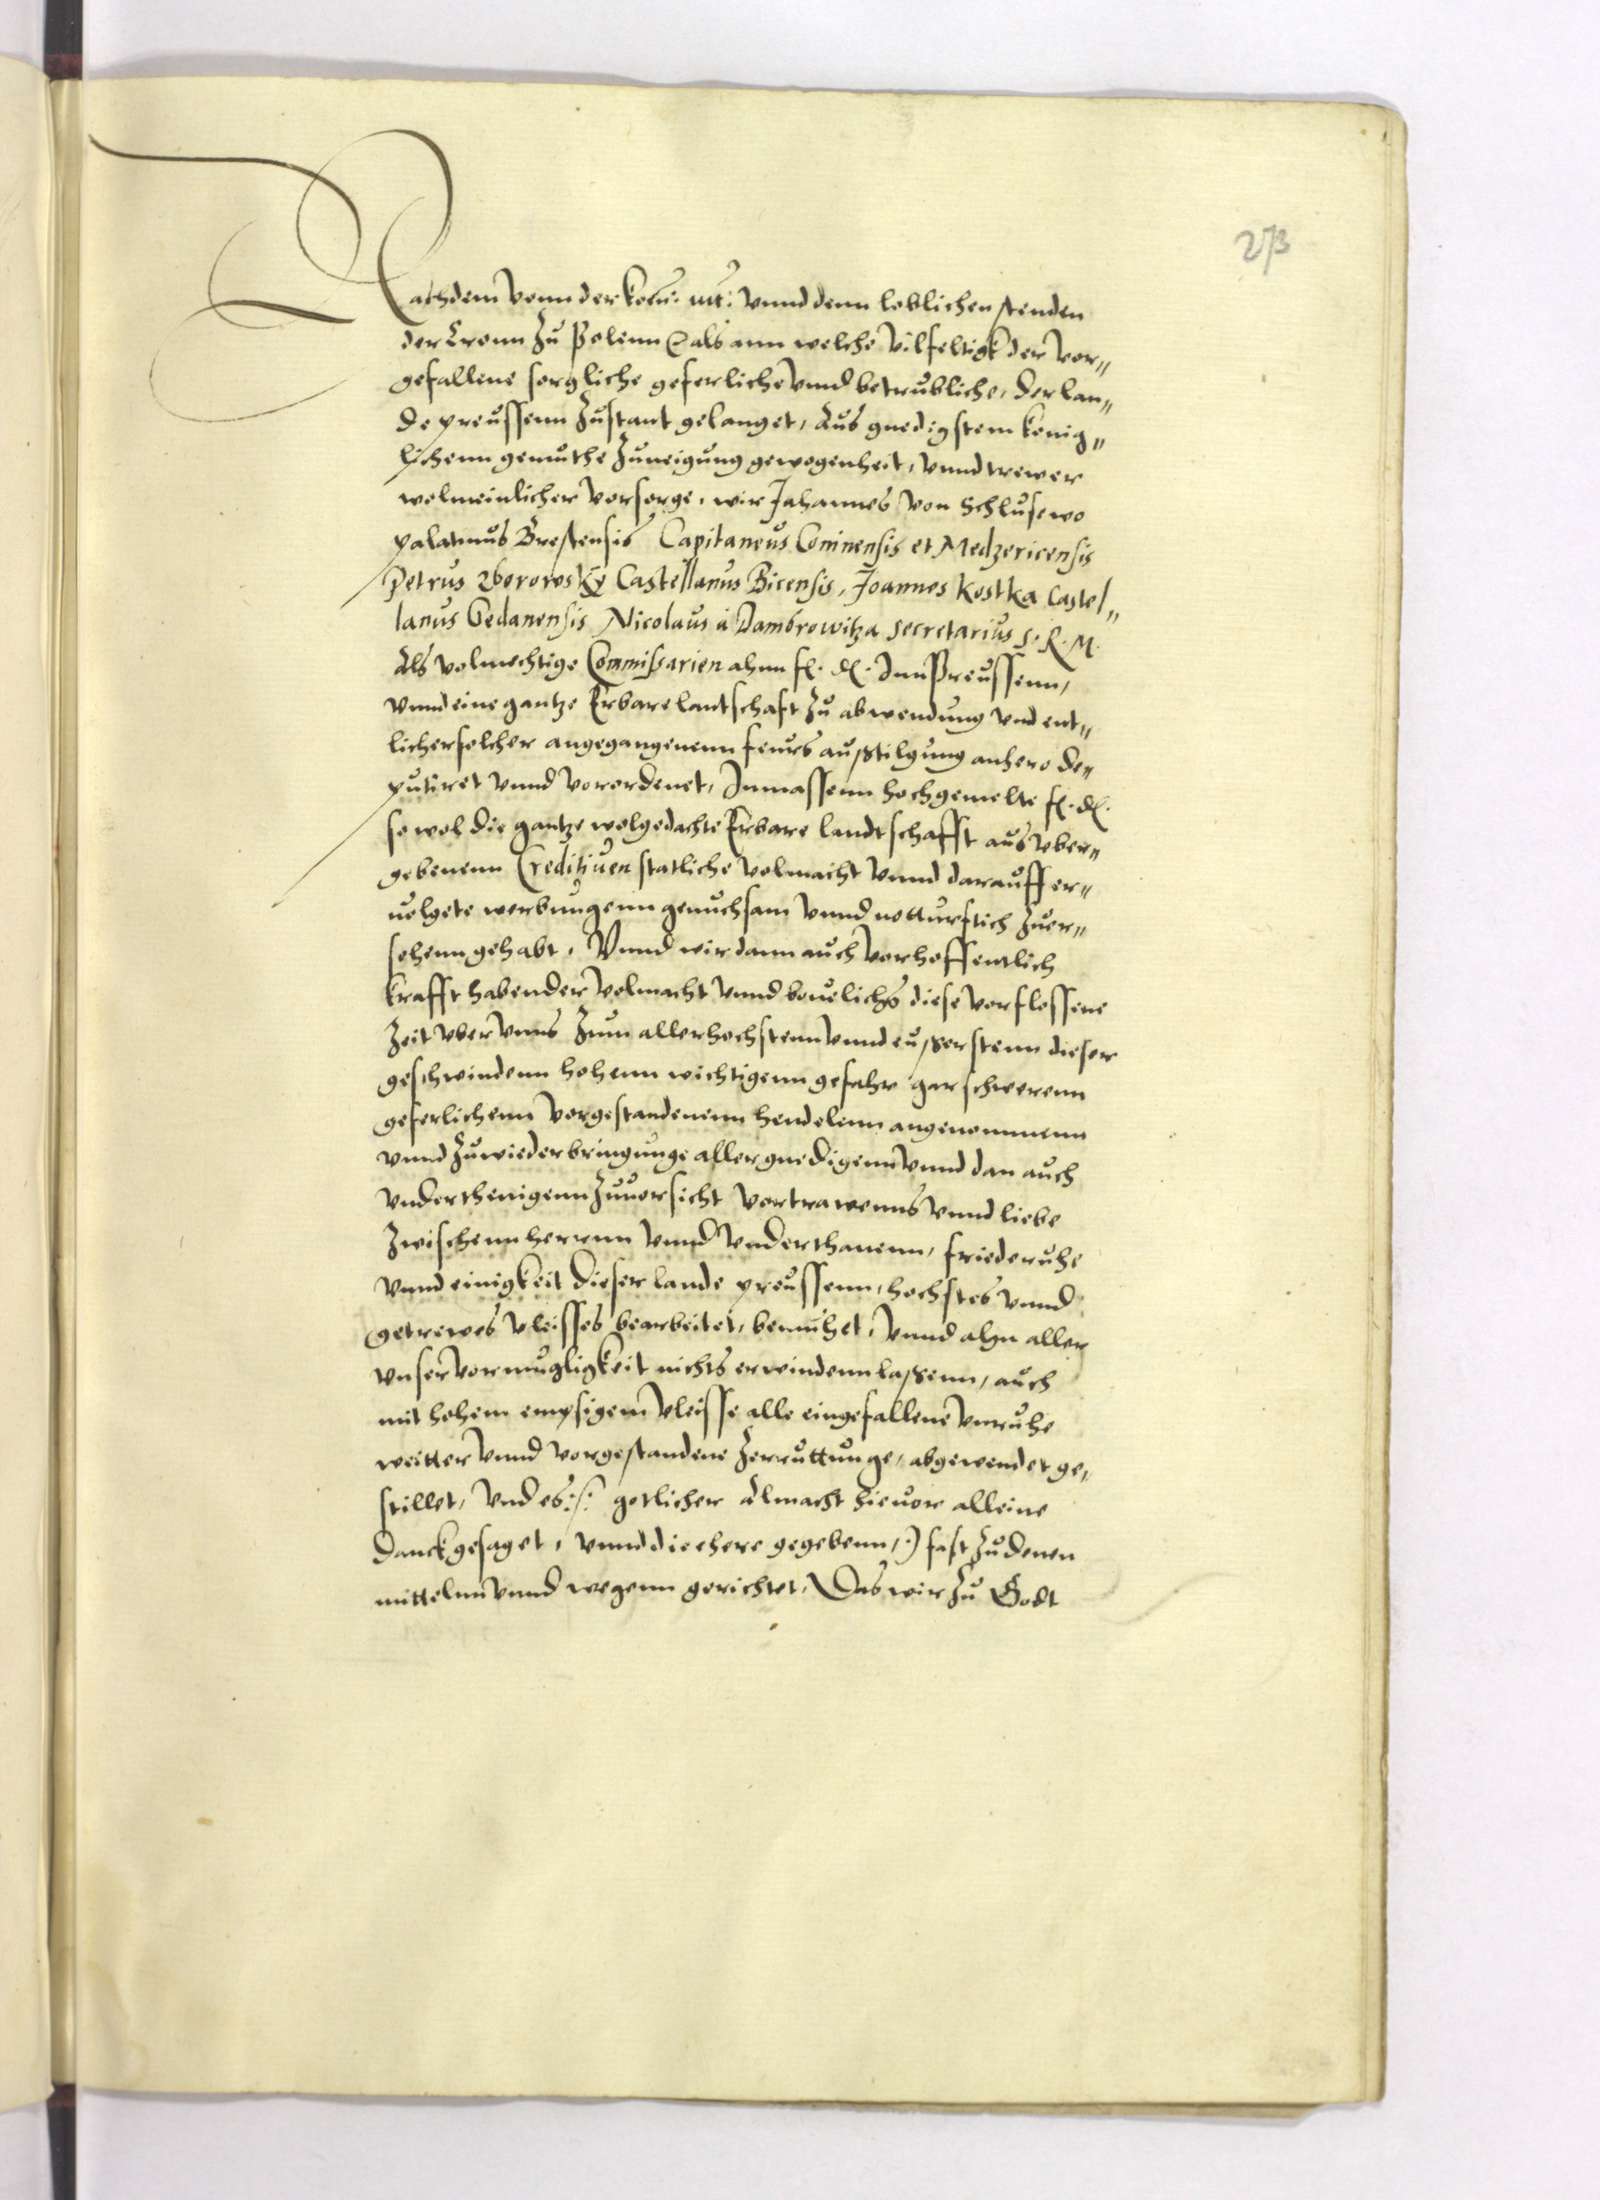 273
Nachdem vonn der Konn: Mt: vnnd denn loblichen stenden
der Cronn zu Polenn als ann welche vilfeltigk der vor„
gefallene sorgliche geferliche vnnd betrubliche, der lan„
de preussenn zustant gelanget, Aus gnedigstem konig„
lichenn gemuthe zuneigung gewogenheit, vnnd trewer
wolmeinlicher vorsorge, wir Johannes von Schlusewo
palatinus Brestensis Capitaneus Coninensis et Medzericensis
Petrus Zborowsky Castellanus Bicensis, Joannes Kostka Castel„
lanus Gedanensis Nicolaus à Dambrowitza secretarius S. R. M.
Als volmechtige Commissarien ahnn f. d. Inn Preussenn,
vnnd eine gantze Erbare lantschaft zu abwendung vnd ent„
licher solcher angegangenenn feurs außtilgung anhero de„
putiret vnnd vorordenet, Inmassenn hochgemelte f. d.
so wol die gantze wolgedachte Erbare landtschafft aus vber„
gebenenn Creditiuen statliche volmacht vnnd darauff er„
uolgete werbungenn genuchsam vnnd notturftich zuer„
sehenn gehabt, Vnnd wir dann auch vorhoffentlich
krafft habender volmacht vnnd beuelichs diese vorflossene
zeit vber vnns zum allerhochstenn vnnd eußerstenn dieser
geschwindenn hohenn wichtigenn gefahr gar schwerenn
geferlichenn vorgestandenenn hendelenn angenommenn
vnnd zuwiederbringunge aller gnedigenn vnnd dan auch
vnderthenigenn zuuorsicht vortrawenns vnnd liebe
zwischenn herrnn vnnd vnderthanenn, friede ruhe
vnnd einigkeit dieser lande preussenn, hochstes vnnd
getrewes vleisses bearbeitet, bemuhet, vnnd ahn aller
vnser vormugligkeit nichts erwindenn laßenn, auch
mit hohem empsigem vleisse alle eingefallene vnruhe
weitter vnnd vorgestandene zerruttunge, abgewendet ge„
stillet, vnd es :/: gotlicher almacht hieuor alleine
danck gesaget, vnnd die ehere gegebenn, :) fast zu denen
mittelnn vnnd wegenn gerichtet, Das wir zu Godt